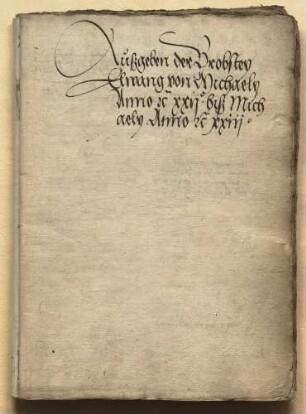 Außgeben der Brobstey
Elwang von Michaely
Anno ꝛc xxij° bist Mich
aely Anno ꝛc xxiij°